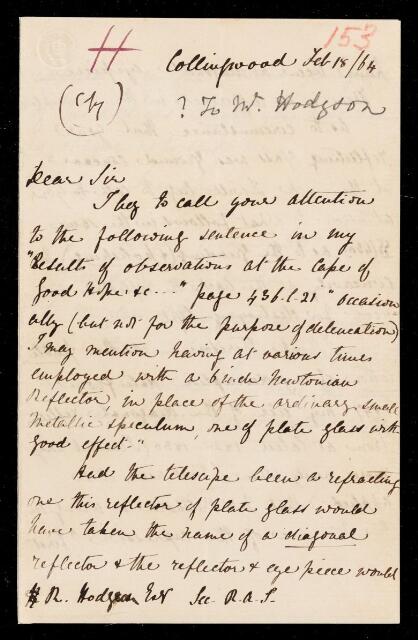 H
153
Collingwood Feb 18/64
(Cpy)
? To W. Hodgson
Dear Sir
I beg to call your attention
to the following sentence in my
"Results of observations at the Cape of
Good Hope &c..." page 436.l.21 "occasion
ally (but not for the purpose of delineation)
I may mention having at various times
employed with a 6 inch Newtonian
Reflector, in place of the ordinary small
Metallic speculum, one of plate glass with
good effect."
Had the telescope been a refracting
one this reflector of plate glass would
have taken the name of a diagonal
reflector & the reflector & eye piece would
R. Hodgson Esq Sec. R.A.S.